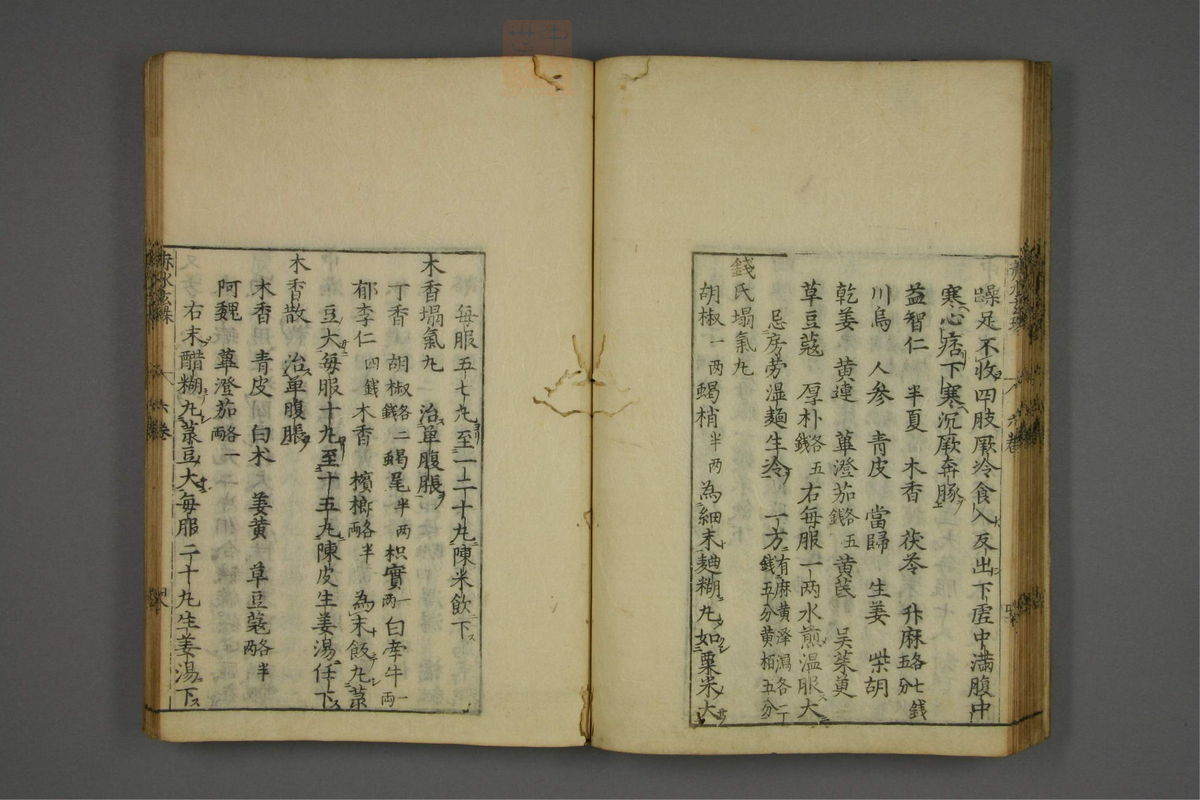 躁足不收四肢厥冷食入反出下虛中滿腹中
寒心痞下寒沉厥奔豚
益智仁 半夏 木香 茯苓 升麻各七錢五分
川烏 人参 青皮 當歸 生姜 柴胡
乾姜 黄連 蓽澄茄各五錢 黄芪 吴茱萸
草豆蔻 厚朴各五錢 右每服一两水煎温服大
忌房劳湿麺生冷 一方有麻黄澤瀉各二錢五分黄栢五分
錢氏塌氣丸
胡椒一两 蝎梢半两 為細末麺糊丸如粟米大
每服五七丸至一二十丸陳米飲下
木香塌氣丸 治單腹脹
丁香 胡椒各二錢 蝎尾半两 枳實一两 白牽牛一两
郁李仁四錢 木香 檳榔各半两 為末飯丸菉
豆大每服十丸至十五丸陳皮生姜湯任下
木香散 治單腹脹
木香 青皮 白朮 姜黄 草豆蔻各半两
阿魏 蓽澄茄各一两
右末醋糊丸菉豆大每服二十丸生姜湯下
赤水玄珠 六卷